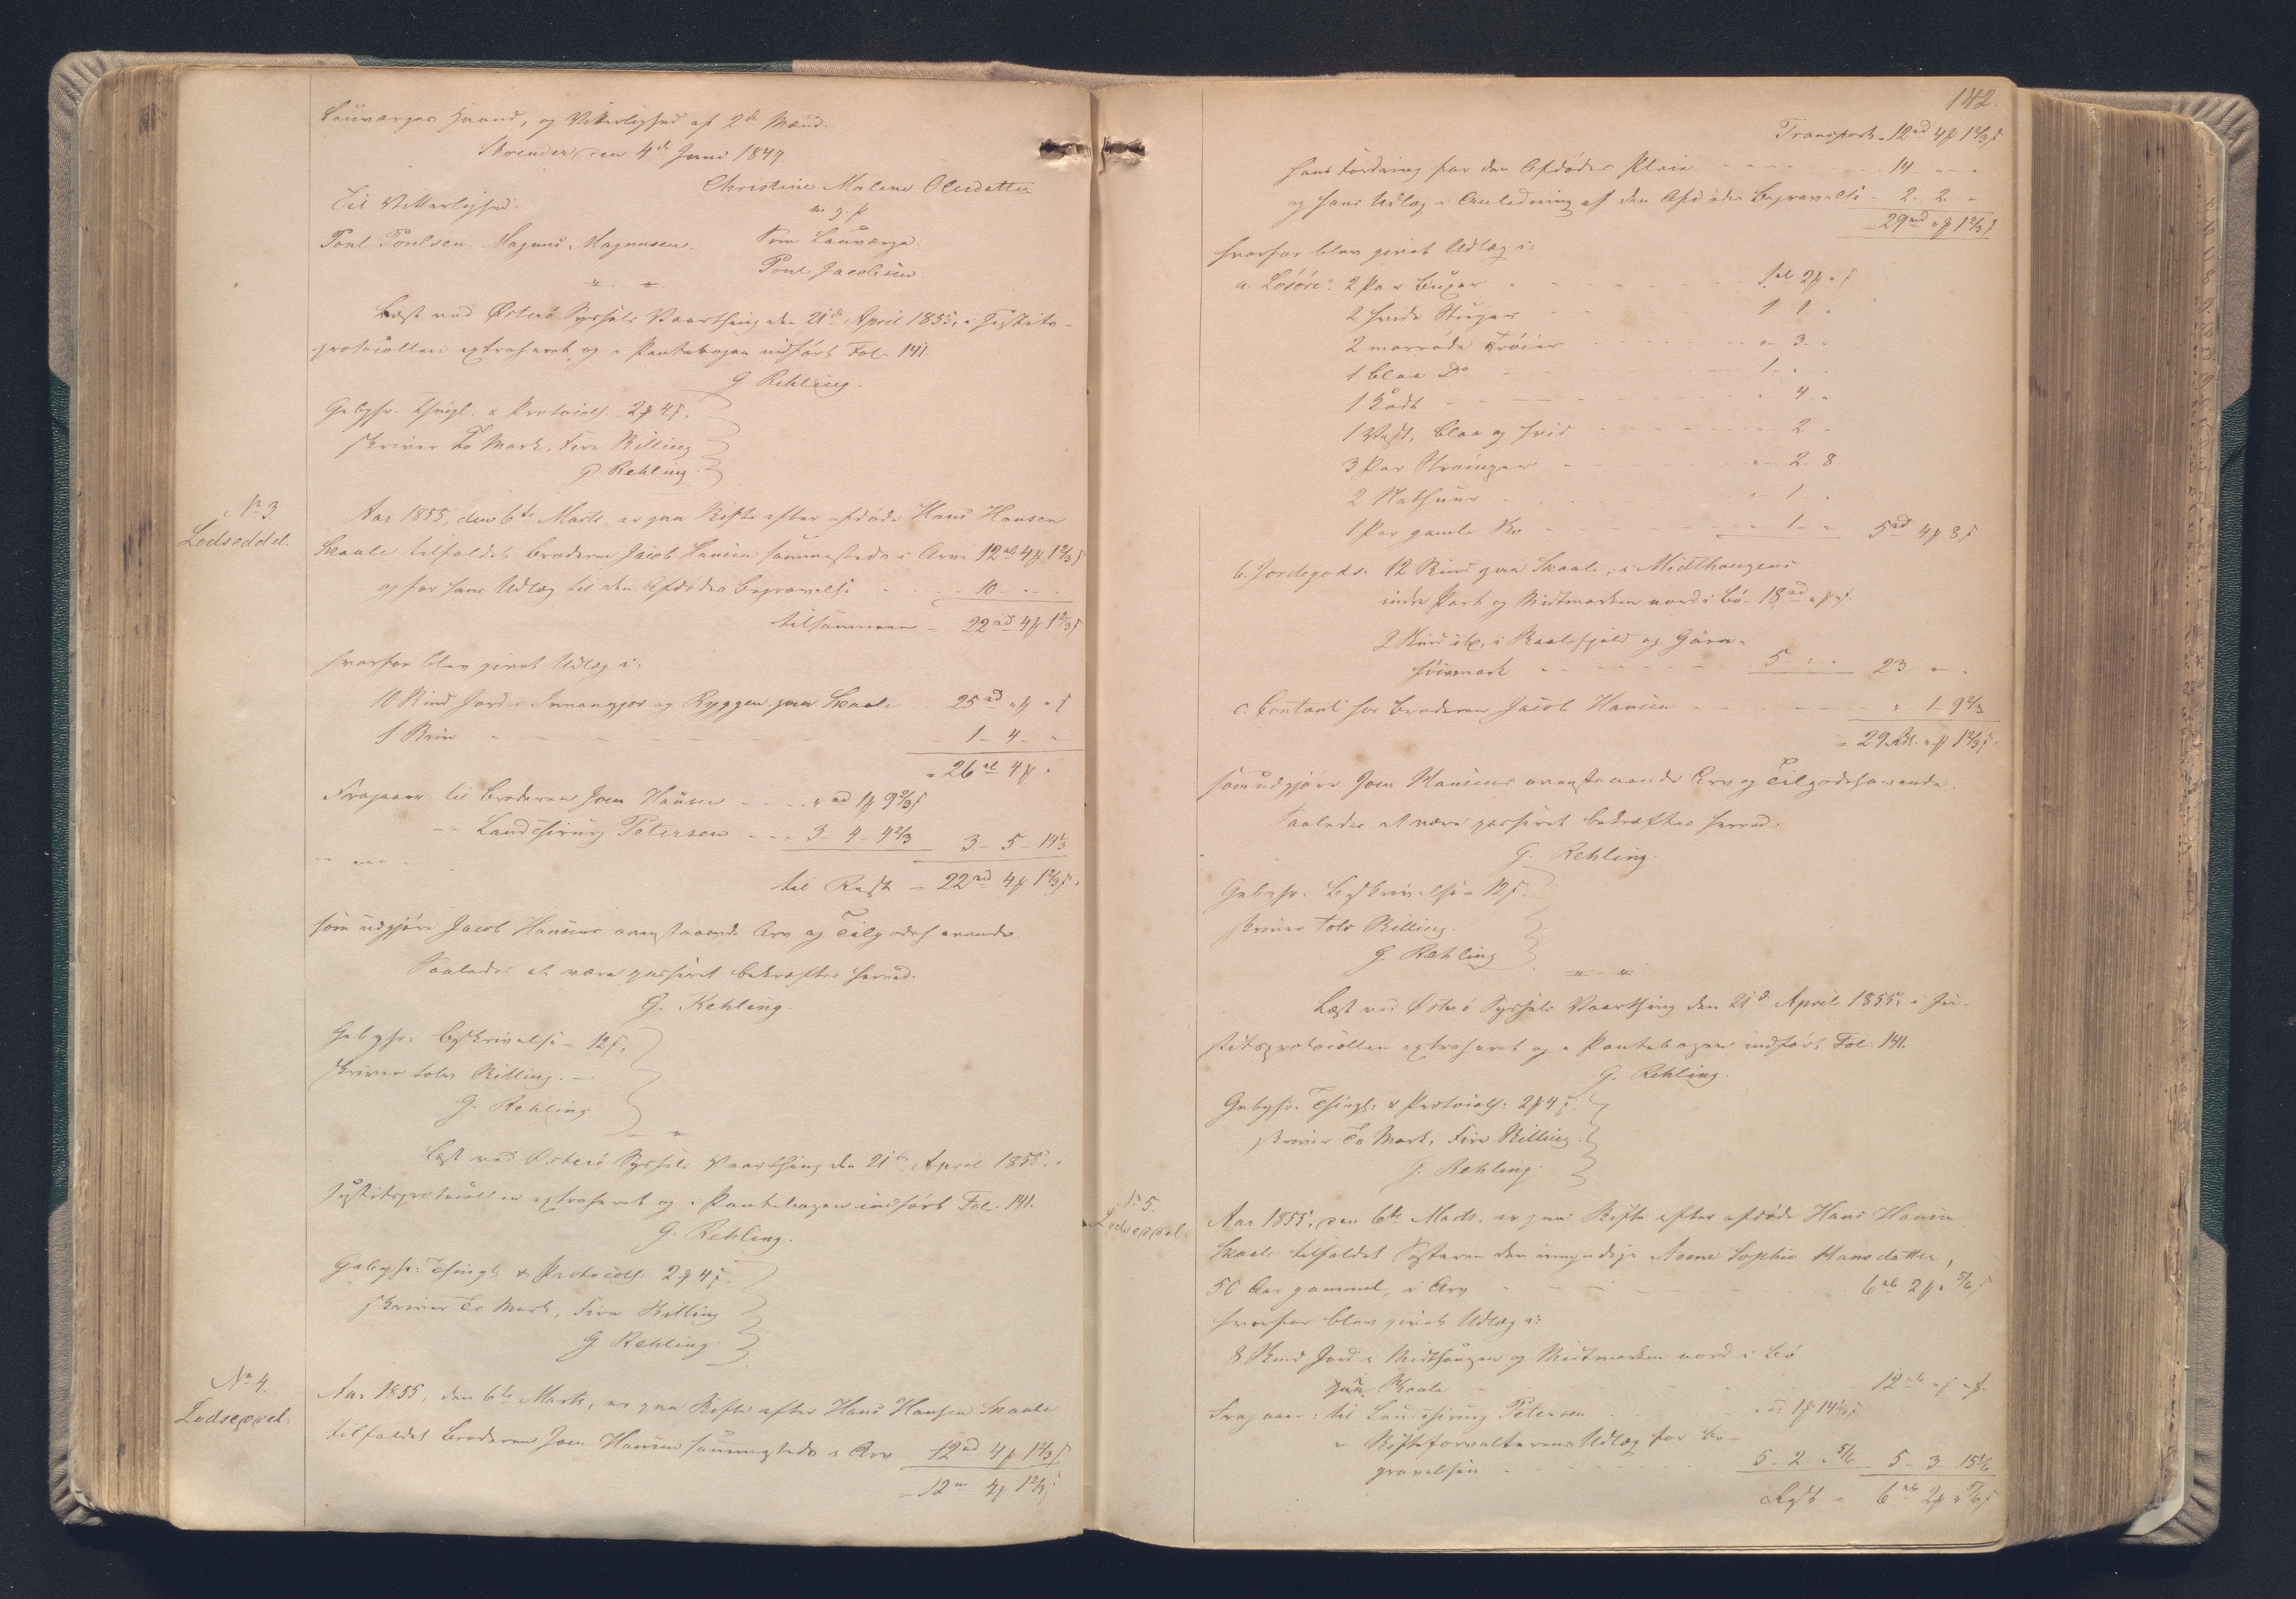 Lauværges Haand, og Vitterlighed af 2de Mænd.
Strender den 4de Juni 1849
Christine Malene Olesdatter
Til Vitterlighed:
m. f. P.
Poul Poulsen. Magnus Magnusen.
Som Lauværge:
Poul Jacobsen
Læst ved Østerø Syssels Vaarthing den 21de April 1855, i Justits-
protocollen extraheret og i Pantebogen indført Fol. 141.
G Rehling.
Gebyhr. Thingl. & Protocoll. 2 ₻ 4 ß.
skriver To Mark, Fire Skilling
G Rehling.
No 3.
Lodseddel.
Aar 1855, den 6te Marts, er paa Skifte efter afdøde Hans Hansen
Skaale tilfaldet Broderen Jacob Hansen sammesteds i Arv 12 rd 4 ₻ 1 2/3 ß
og for hans Udlæg til den Afdødes Begravelse - - 10 - -
tilsammen - 22 rd 4 ₻ 1 2/3 ß
hvorfor blev givet Udlæg i:
10 Skind Jord i Innangjov og Ryggen paa Skaale 25 rd " ₻ " ß
1 - - - 1 - 4 - "
= 26 rd 4 ₻ "
Fragaaer: til Broderen Joen Hansen - - " rd 1 ₻ 9 2/3 ß
- " Landchirurg Petersen - - 3 - 4 - 4 2/3 3 - 5 - 14 1/3
til Rest - 22 rd 4 ₻ 1 2/3 ß.
som udgjøre Jacob Hansens ovenstaaende Arv og Tilgodehavende.
Saaledes at være passeret bekræftes herved.
G. Rehling.
Gebyhr: Beskrivelse - 12 ß.
skriver tolv Skilling. -
G. Rehling
Læst ved Østerø Syssels Vaarthing den 21de April 1855, i
Justitsprotocollen extraheret og i Pantebogen indført Fol. 141.
G. Rehling.
Gebyhr: Thingl. & Protocoll. 2 ₻ 4 ß.
skriver To Mark, Fire Skilling
G Rehling
No 4.
Lodseddel.
Aar 1855, den 6te Marts, er paa Skifte efter Hans Hansen Skaale
tilfaldet Broderen Joen Hansen sammesteds i Arv 12 rd 4 ₻ 1 2/3 ß
- 12 rd 4 ₻ 1 2/3 ß
142.
Transport - 12 rd 4 ₻ 1 2/3 ß
hans Fordring for den Afdødes Pleie - - - 14 " "
og hans Udlæg i Anledning af den Afdødes Begravelse - 2 - 2 - "
29 rd " ₻ 1 2/3 ß
hvorfor blev givet Udlæg i:
a. Løsøre: 2 Par Buxer - - 1 rd 2 ₻ " ß
2 hvide - - 1 1 "
2 morrøde Trøier - - " 3 - "
1 blaa Do - - 1 - "
1 - - " 4 "
1 Vest, blaa og hvid - - " 2 "
3 Par Strømper - - " 2 - 8.
2 Nathuer - - " 1 "
1 Par gamle Sko - - " 1 - " 5 rd 4 ₻ 8 ß
b. Jordegods: 12 Skind paa Skaale, i Midthaugens
indre Part og Midtmarken nord i Bø - 18 rd " ₻ " ß.
2 Skind ibd, i Kaalefjeld og
- - 5 - " " 23 " "
c. Contant hos Broderen Jacob Hansen - - " 1 - 9 2/3
= 29 Rdl. " ₻ 1 2/3 ß.
som udgjøre Joen Hansens ovenstaaende Arv og Tilgodehavende.
Saaledes at være passeret bekræftes herved.
G. Rehling.
Gebyhr. Beskrivelse - 12 ß.
skriver tolv Skilling.
G. Rehling
Læst ved Østerø Syssels Vaarthing den 21de April 1855, i Ju-
stitsprotocollen extraheret og i Pantebogen indført Fol. 141.
G. Rehling.
Gebyhr. Thingl: & Protocoll: 2 ₻ 4 ß.
skriver To Mark, Fire Skilling.
G. Rehling.
No 5.
Lodseddel.
Aar 1855, den 6te Marts, er paa Skifte efter afdøde Hans Hansen
Skaale tilfaldet Søsteren den umyndige Anne Sophie Hansdatter,
50 Aar gammel, i Arv - - 6 rd 2 ₻ " 5/6 ß
hvorfor blev givet Udlæg i:
8 Skind Jord i Midthaugen og Midtmarken nord i Bø
paa Skaale - - 12 rd " ₻ " ß.
Fragaaer: til Landchirurg Petersen - " rd 1 ₻ 14 1/3 ß
" Skifteforvalterens Udlæg for Be-
gravelsen - - 5 - 2 - " 5/6 5 - 3 - 15 1/6
Rest = 6 rd 2 ₻ " 5/6 ß